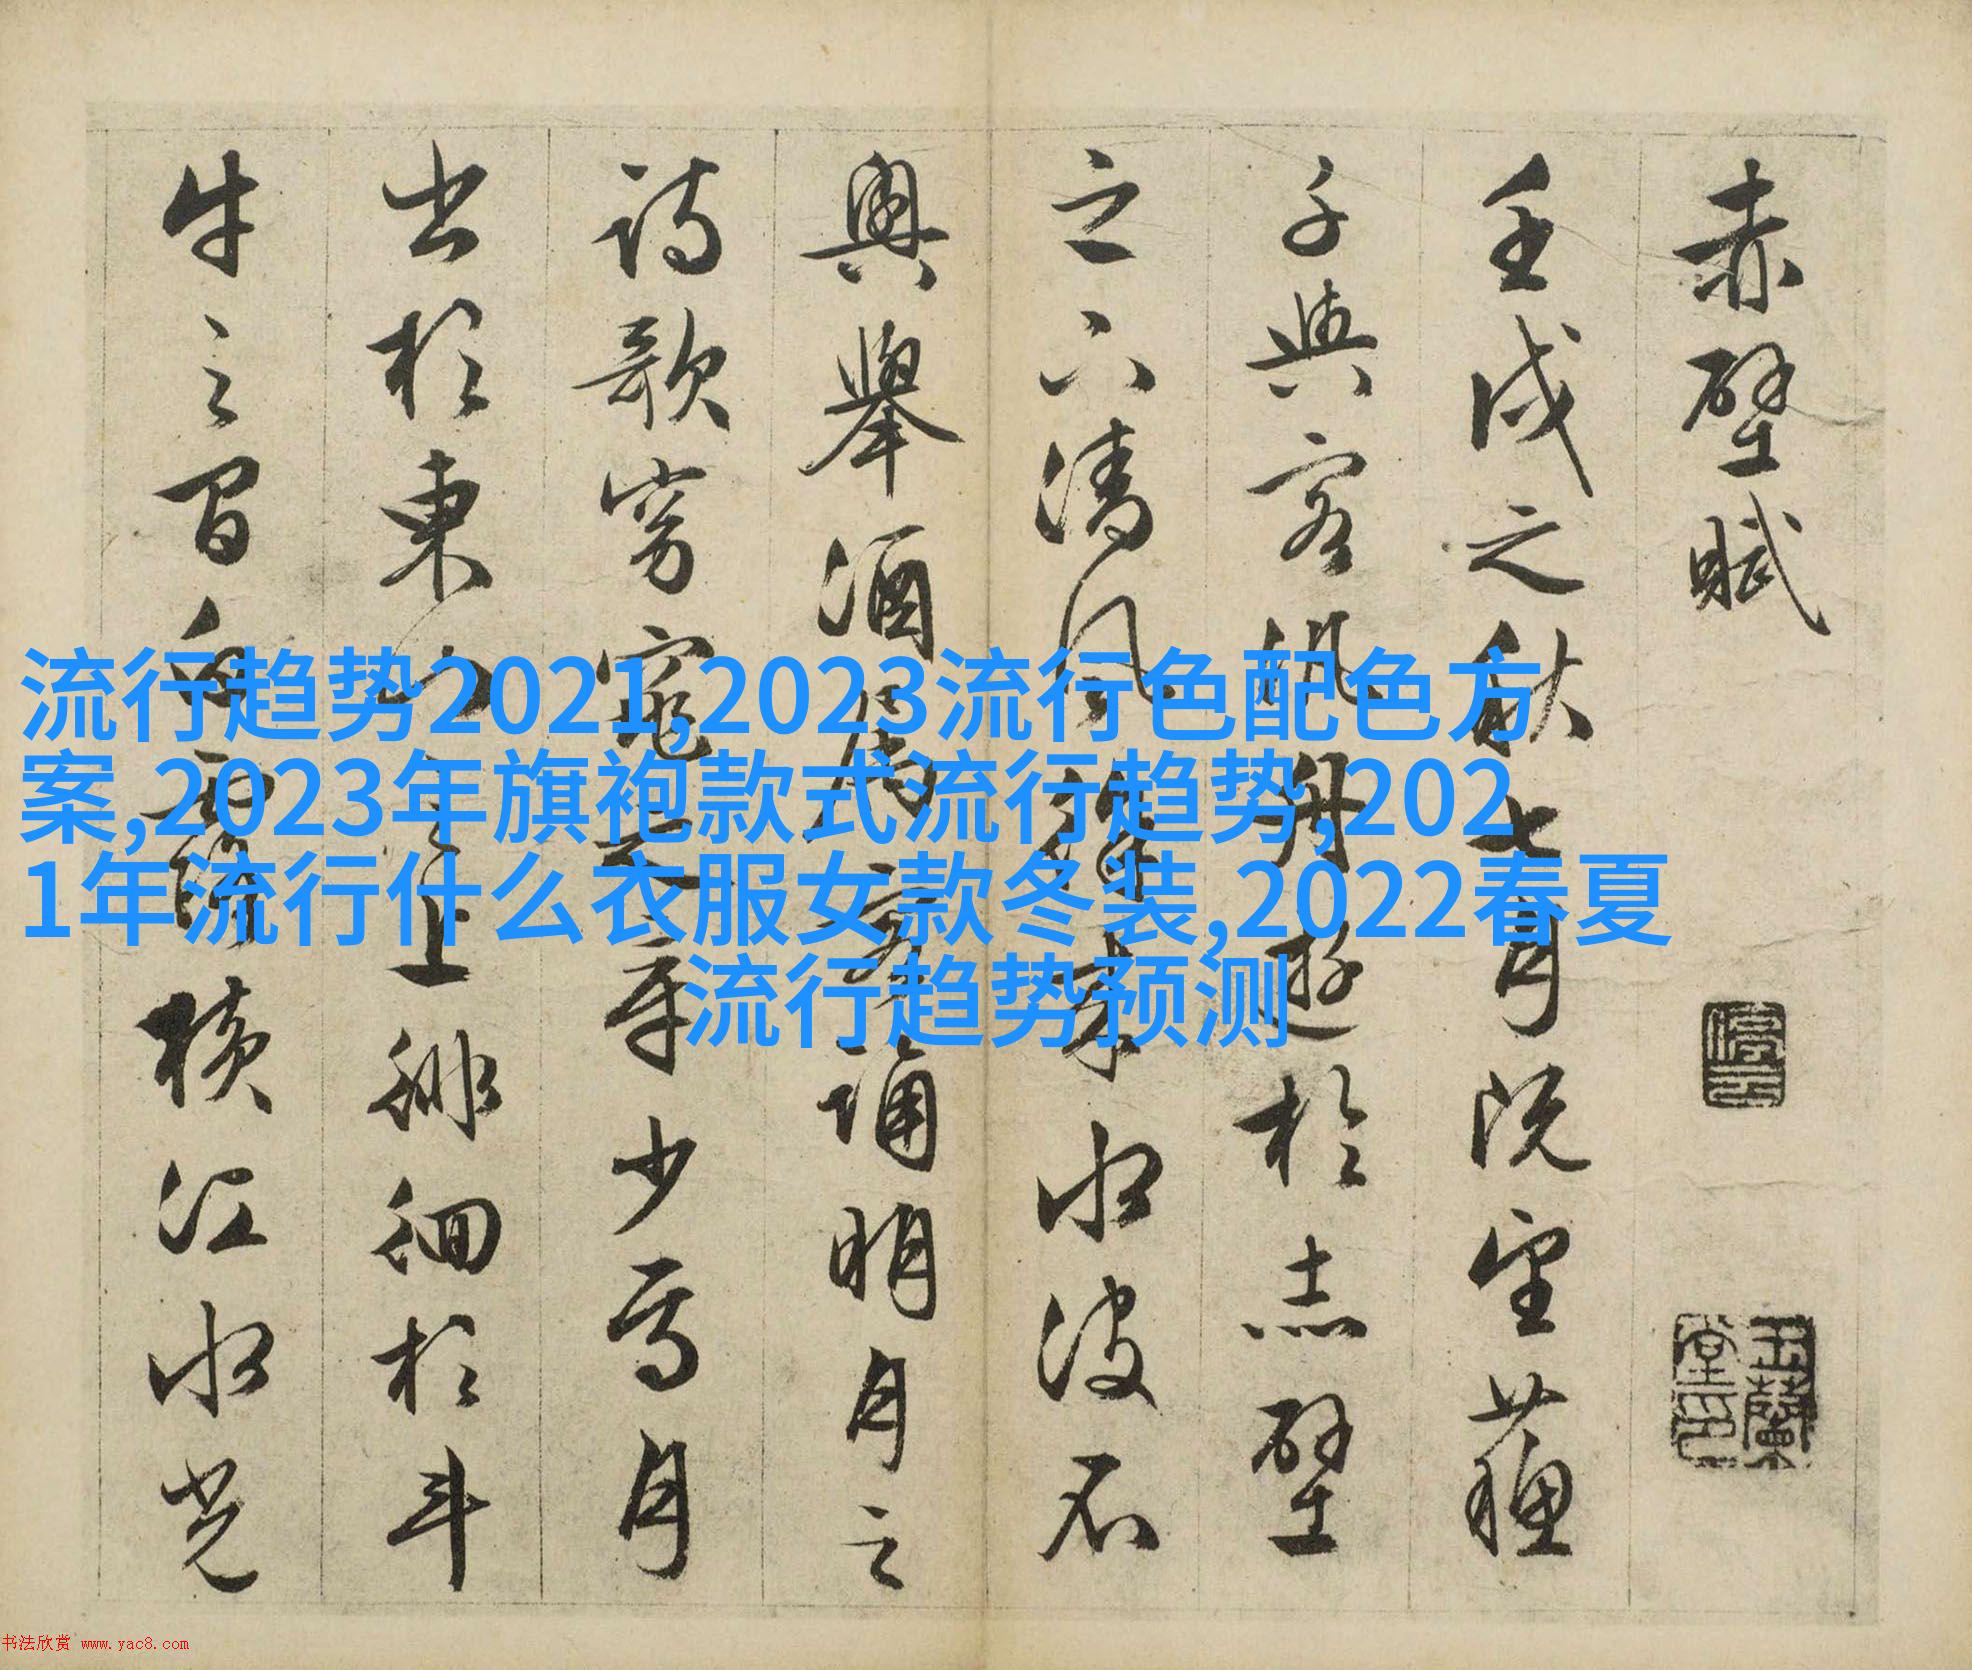 赤壁賦
壬戌之秋七月既望蘓
子與客汎舟遊於赤壁
之下清風徐來水波不
興舉酒屬客誦明月之
詩歌窈窕之章少焉月
出於東山之上徘徊於斗
牛之間白露橫江水光
停雲
玉蘭堂印
流行趋势2021,2023流行色配色方
案,2023年旗袍款式流行趋势,202
1年流行什么衣服女款冬装,2022春夏
流行趋势预测
书法欣赏 www.yac8.com